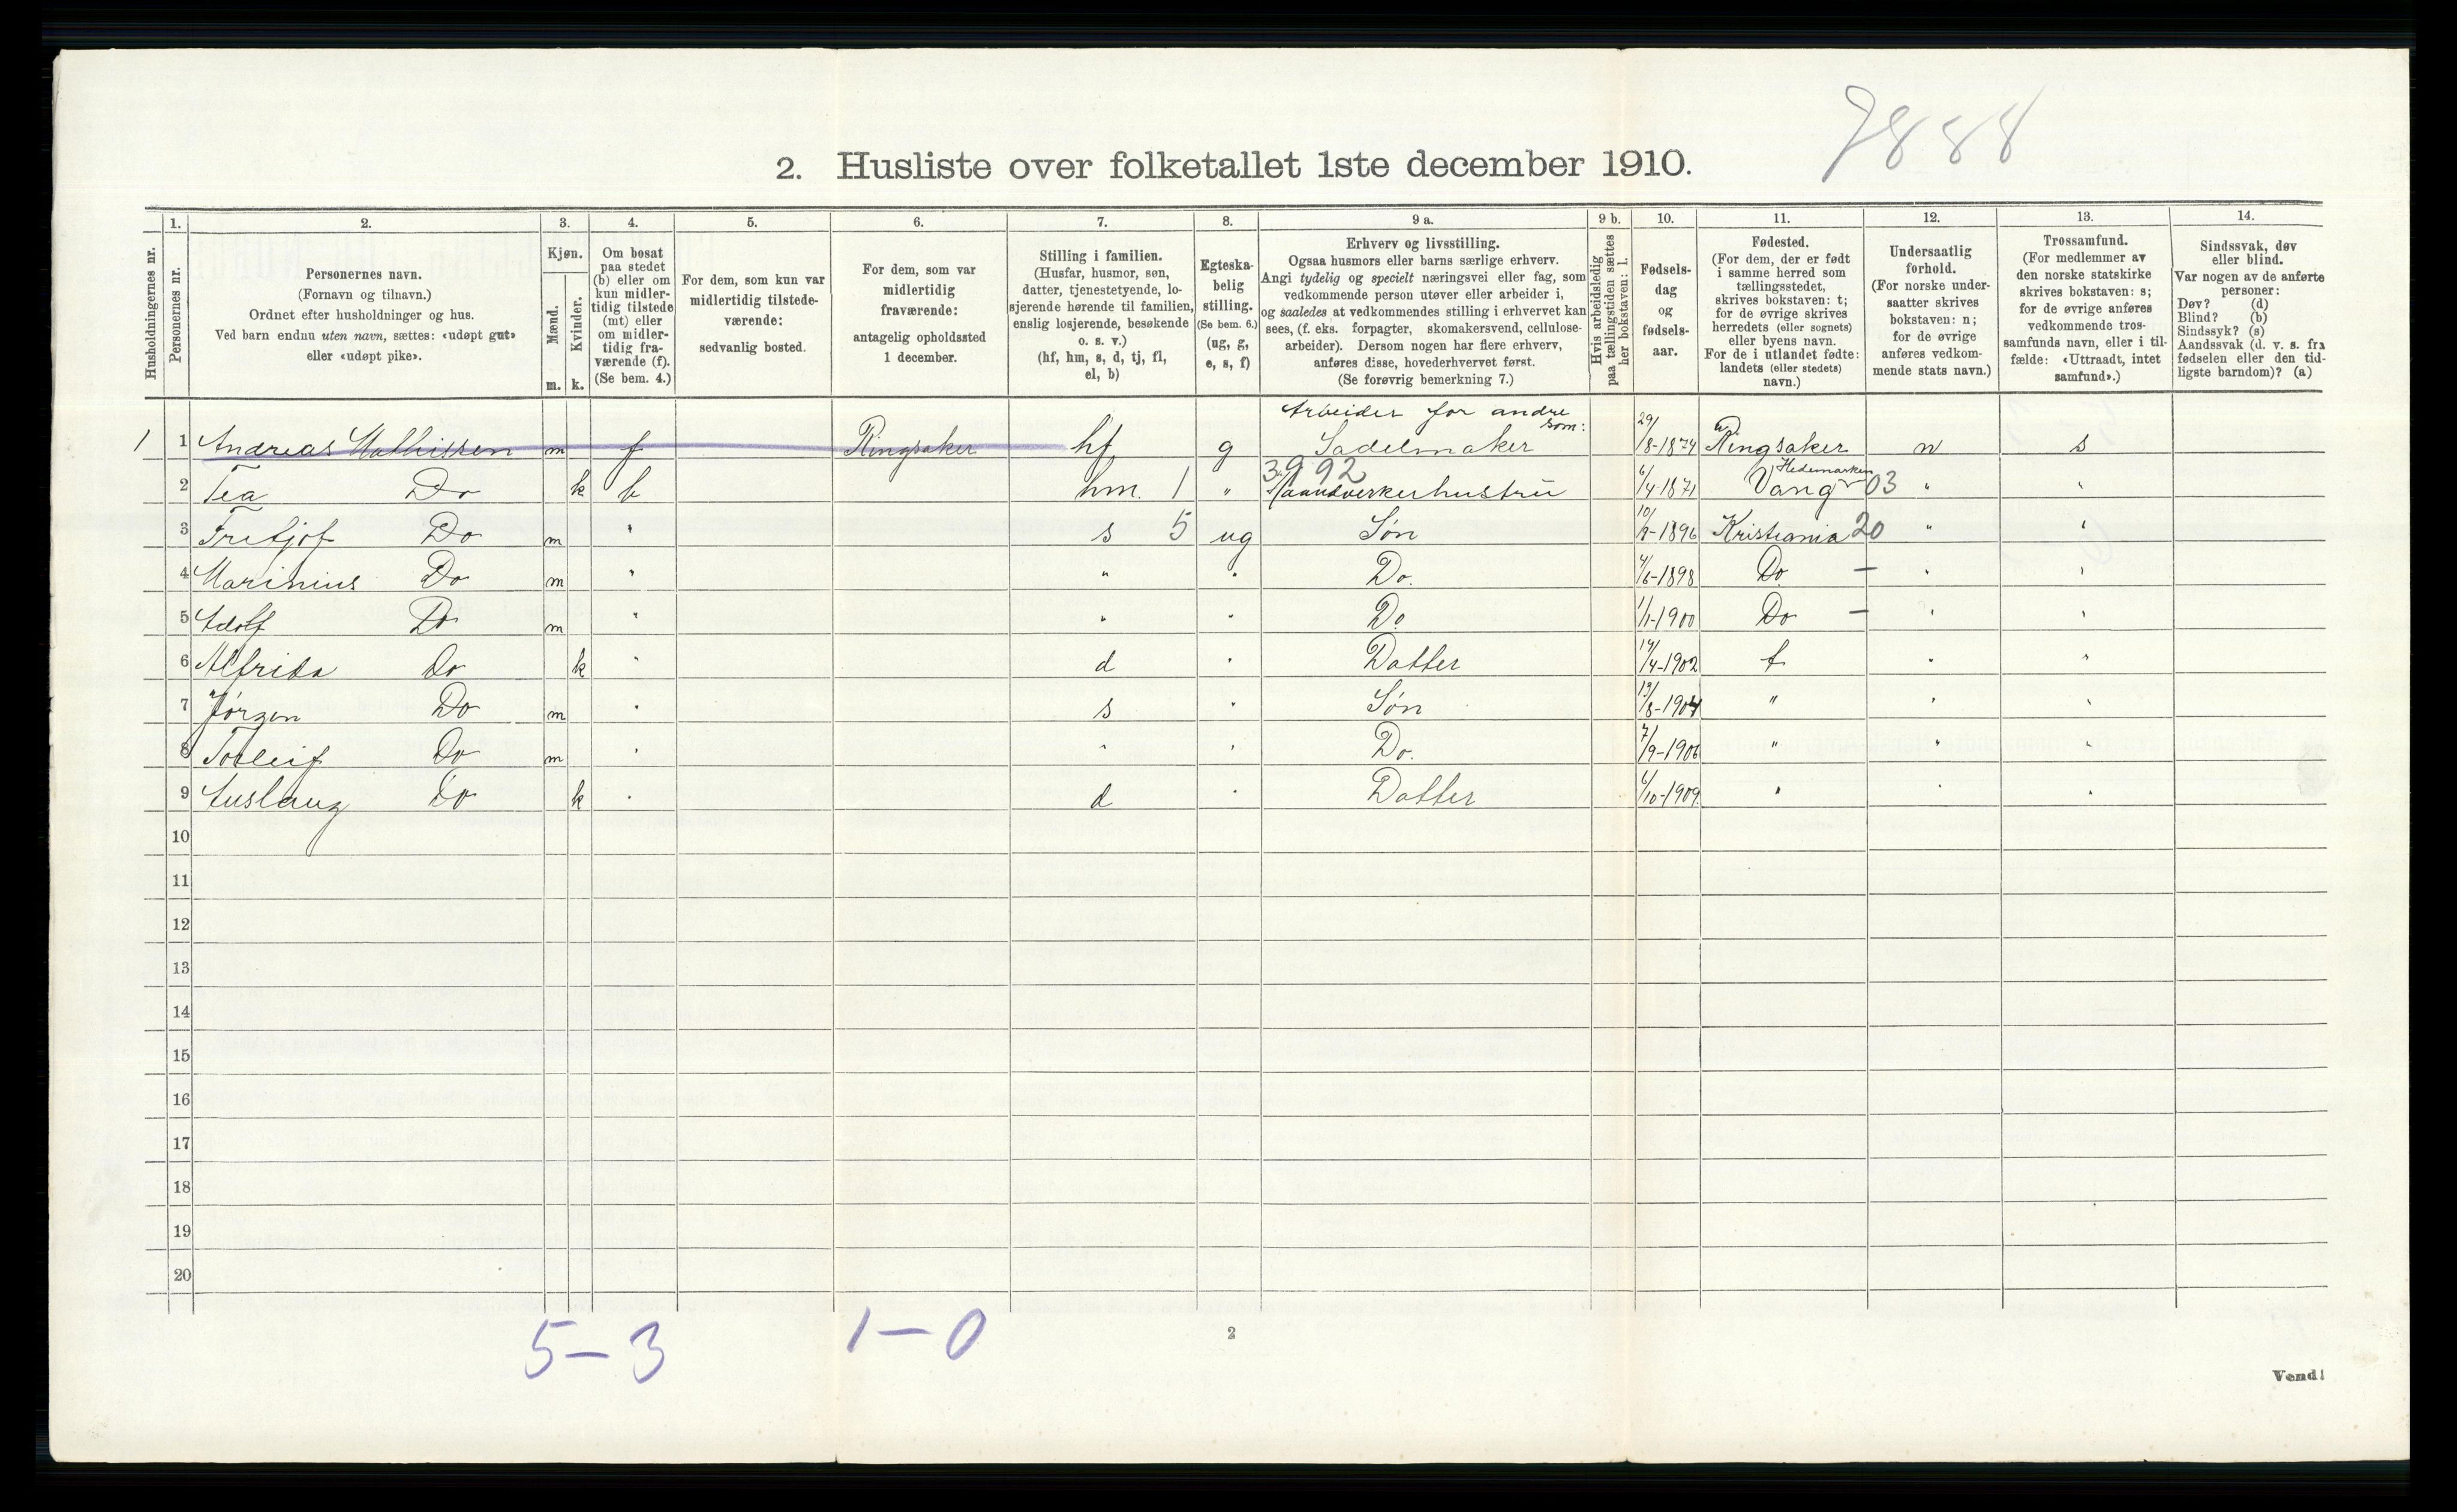 7888
2. Husliste over folketallet 1ste december 1910.
1. 2. 3. 4. 5. 6. 7. 8. 9 a. 9 b. 10. 11. 12. 13. 14.
Husholdningernes nr.
Personernes nr.
Personernes navn.
(Fornavn og tilnavn.)
Ordnet efter husholdninger og hus.
Ved barn endnu uten navn, sættes: «udøpt gut»
eller «udøpt pike».
Kjøn.
Mænd.
Kvinder.
m. k.
Om bosat
paa stedet
(b) eller om
kun midler-
tidig tilstede
(mt) eller
om midler-
tidig fra-
værende (f).
(Se bem. 4.)
For dem, som kun var
midlertidig tilstede-
værende:
sedvanlig bosted.
For dem, som var
midlertidig
fraværende:
antagelig opholdssted
1 december.
Stilling i familien.
(Husfar, husmor, søn,
datter, tjenestetyende, lo-
sjerende hørende til familien,
enslig losjerende, besøkende
o. s. v.)
(hf, hm, s, d, tj, fl,
el, b)
Egteska-
belig
stilling.
(Se bem. 6.)
(ug, g,
e, s, f)
Erhverv og livsstilling.
Ogsaa husmors eller barns særlige erhverv.
Angi tydelig og specielt næringsvei eller fag, som
vedkommende person utøver eller arbeider i,
og saaledes at vedkommendes stilling i erhvervet kan
sees, (f. eks. forpagter, skomakersvend, cellulose-
arbeider). Dersom nogen har flere erhverv,
anføres disse, hovederhvervet først.
(Se forøvrig bemerkning 7.)
Hvis arbeidsledig
paa tællingstiden sættes
her bokstaven: l.
Fødsels-
dag
og
fødsels-
aar.
Fødested.
(For dem, der er født
i samme herred som
tællingsstedet,
skrives bokstaven: t;
for de øvrige skrives
herredets (eller sognets)
eller byens navn.
For de i utlandet fødte:
landets (eller stedets)
navn.)
Undersaatlig
forhold.
(For norske under-
saatter skrives
bokstaven: n;
for de øvrige
anføres vedkom-
mende stats navn.)
Trossamfund.
(For medlemmer av
den norske statskirke
skrives bokstaven: s;
for de øvrige anføres
vedkommende tros-
samfunds navn, eller i til-
fælde: «Uttraadt, intet
samfund».)
Sindssvak, døv
eller blind.
Var nogen av de anførte
personer:
Døv? (d)
Blind? (b)
Sindssyk? (s)
Aandssvak (d. v. s. fra
fødselen eller den tid-
ligste barndom)? (a)
Arbeider for andre
som:
1 1 Andreas Mathissen m f Ringsaker hf g Sadelmaker 29/8-1874 Ringsaker n s
3992
Hedemarken
2 Tea Do k b hm. 1 " Haandverkerhustru 6/4-1871 Vang 03 " "
3 Fretjof Do m " s 5 ug Søn 10/9-1896 Kristiania 20 " "
4 Marinius Do m " " " Do. 4/6-1898 Do — " "
5 Adolf Do m " " " Do 1/1-1900 Do — " "
6 Alfrida Do k " d " Datter 14/4-1902 t " "
7 Jørgen Do m " s " Søn 19/8-1904 " " "
8 Torleif Do m " " " Do. 7/9-1906 " " "
9 Auslaug Do k " d " Datter 6/10-1909. " " "
10
11
12
13
14
15
16
17
18
19
20
5-3 1-0
2
Vend!